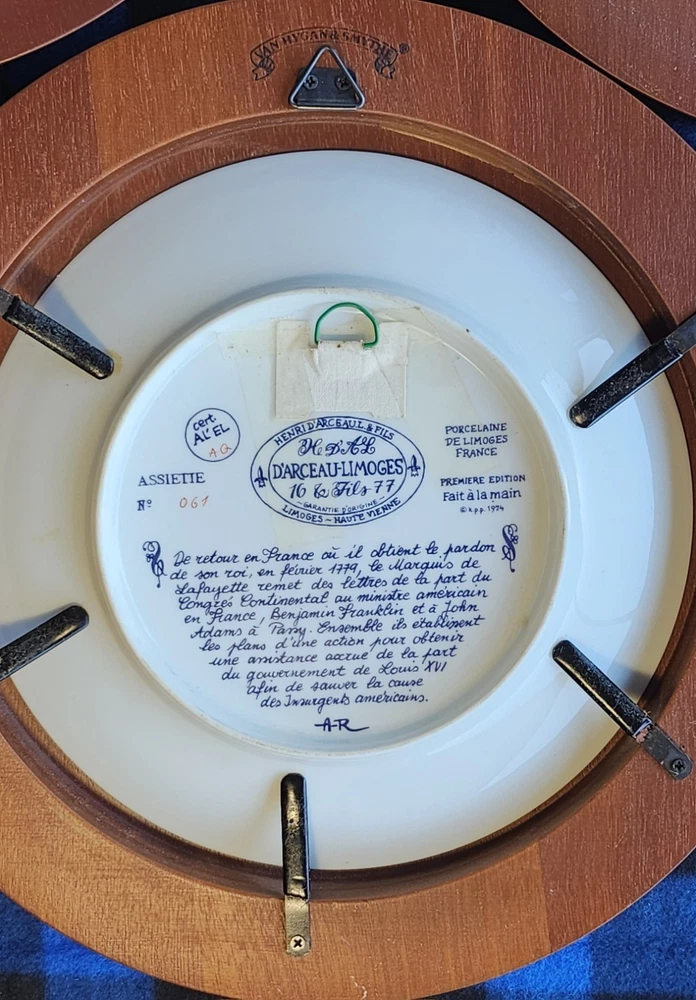 VAN HYGAN & SMYTHE ®
cert.
AL'EL
A.Q
HENRI D'ARCEAU L. & FILS
H DAL
D'ARCEAU-LIMOGES
16 & Fils 77
GARANTIE D'ORIGINE
LIMOGES ~ HAUTE VIENNE
PORCELAINE
DE LIMOGES
FRANCE
ASSIETTE
Nº 061
PREMIERE EDITION
Fait à la main
© 1974
De retour en France où il obtient le pardon
de son roi, en février 1779, le Marquis de
Lafayette remet des lettres de la part du
Congrès Continental au ministre américain
en France, Benjamin Franklin et à John
Adams à Passy. Ensemble ils établissent
les plans d'une action pour obtenir
une assistance accrue de la part
du gouvernement de Louis XVI
afin de sauver la cause
des Insurgents américains.
A-R